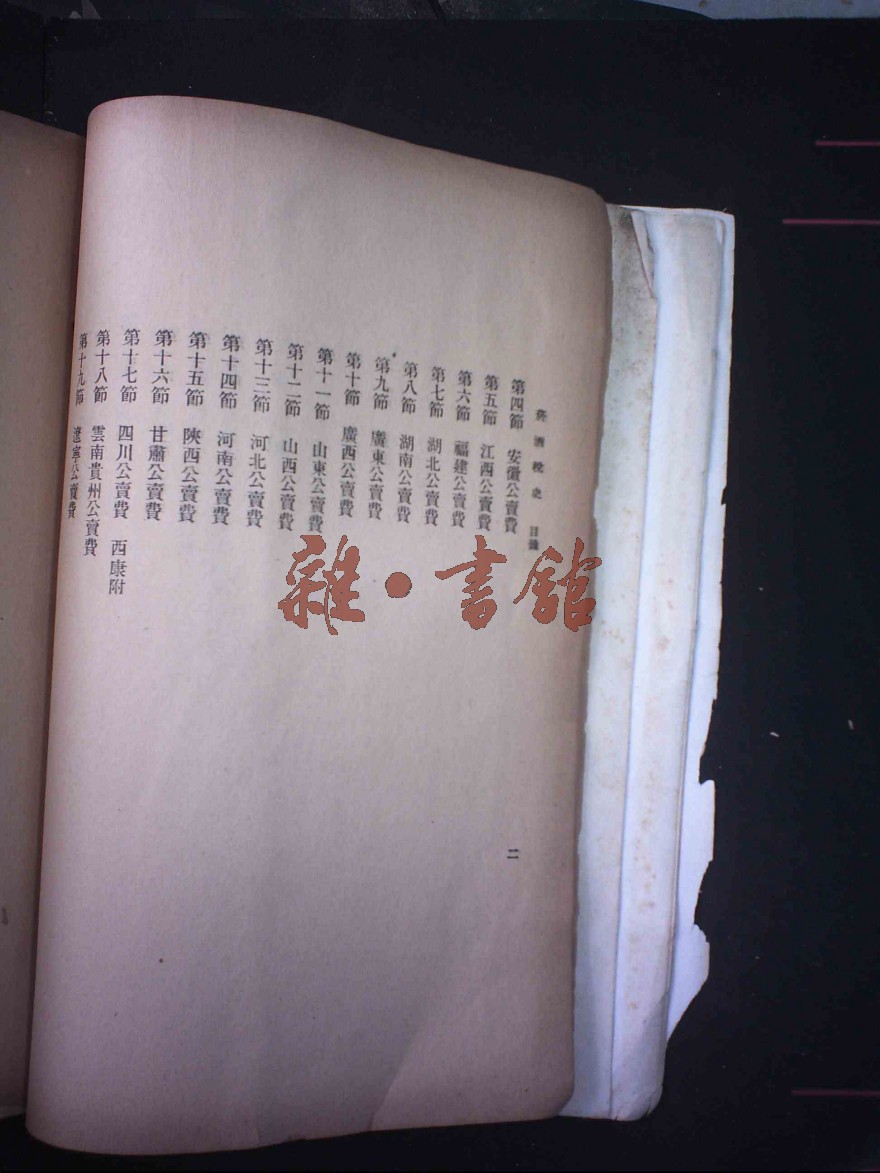 菸酒稅史 目錄
第四節 安徽公賣費
第五節 江西公賣費
第六節 福建公賣費
第七節 湖北公賣費
第八節 湖南公賣費
第九節 廣東公賣費
第十節 廣西公賣費
第十一節 山東公賣費
第十二節 山西公賣費
第十三節 河北公賣費
第十四節 河南公賣費
第十五節 陝西公賣費
第十六節 甘肅公賣費
第十七節 四川公賣費 西康附
第十八節 雲南貴州公賣費
第十九節 遼寧公賣費
二
雜·書館